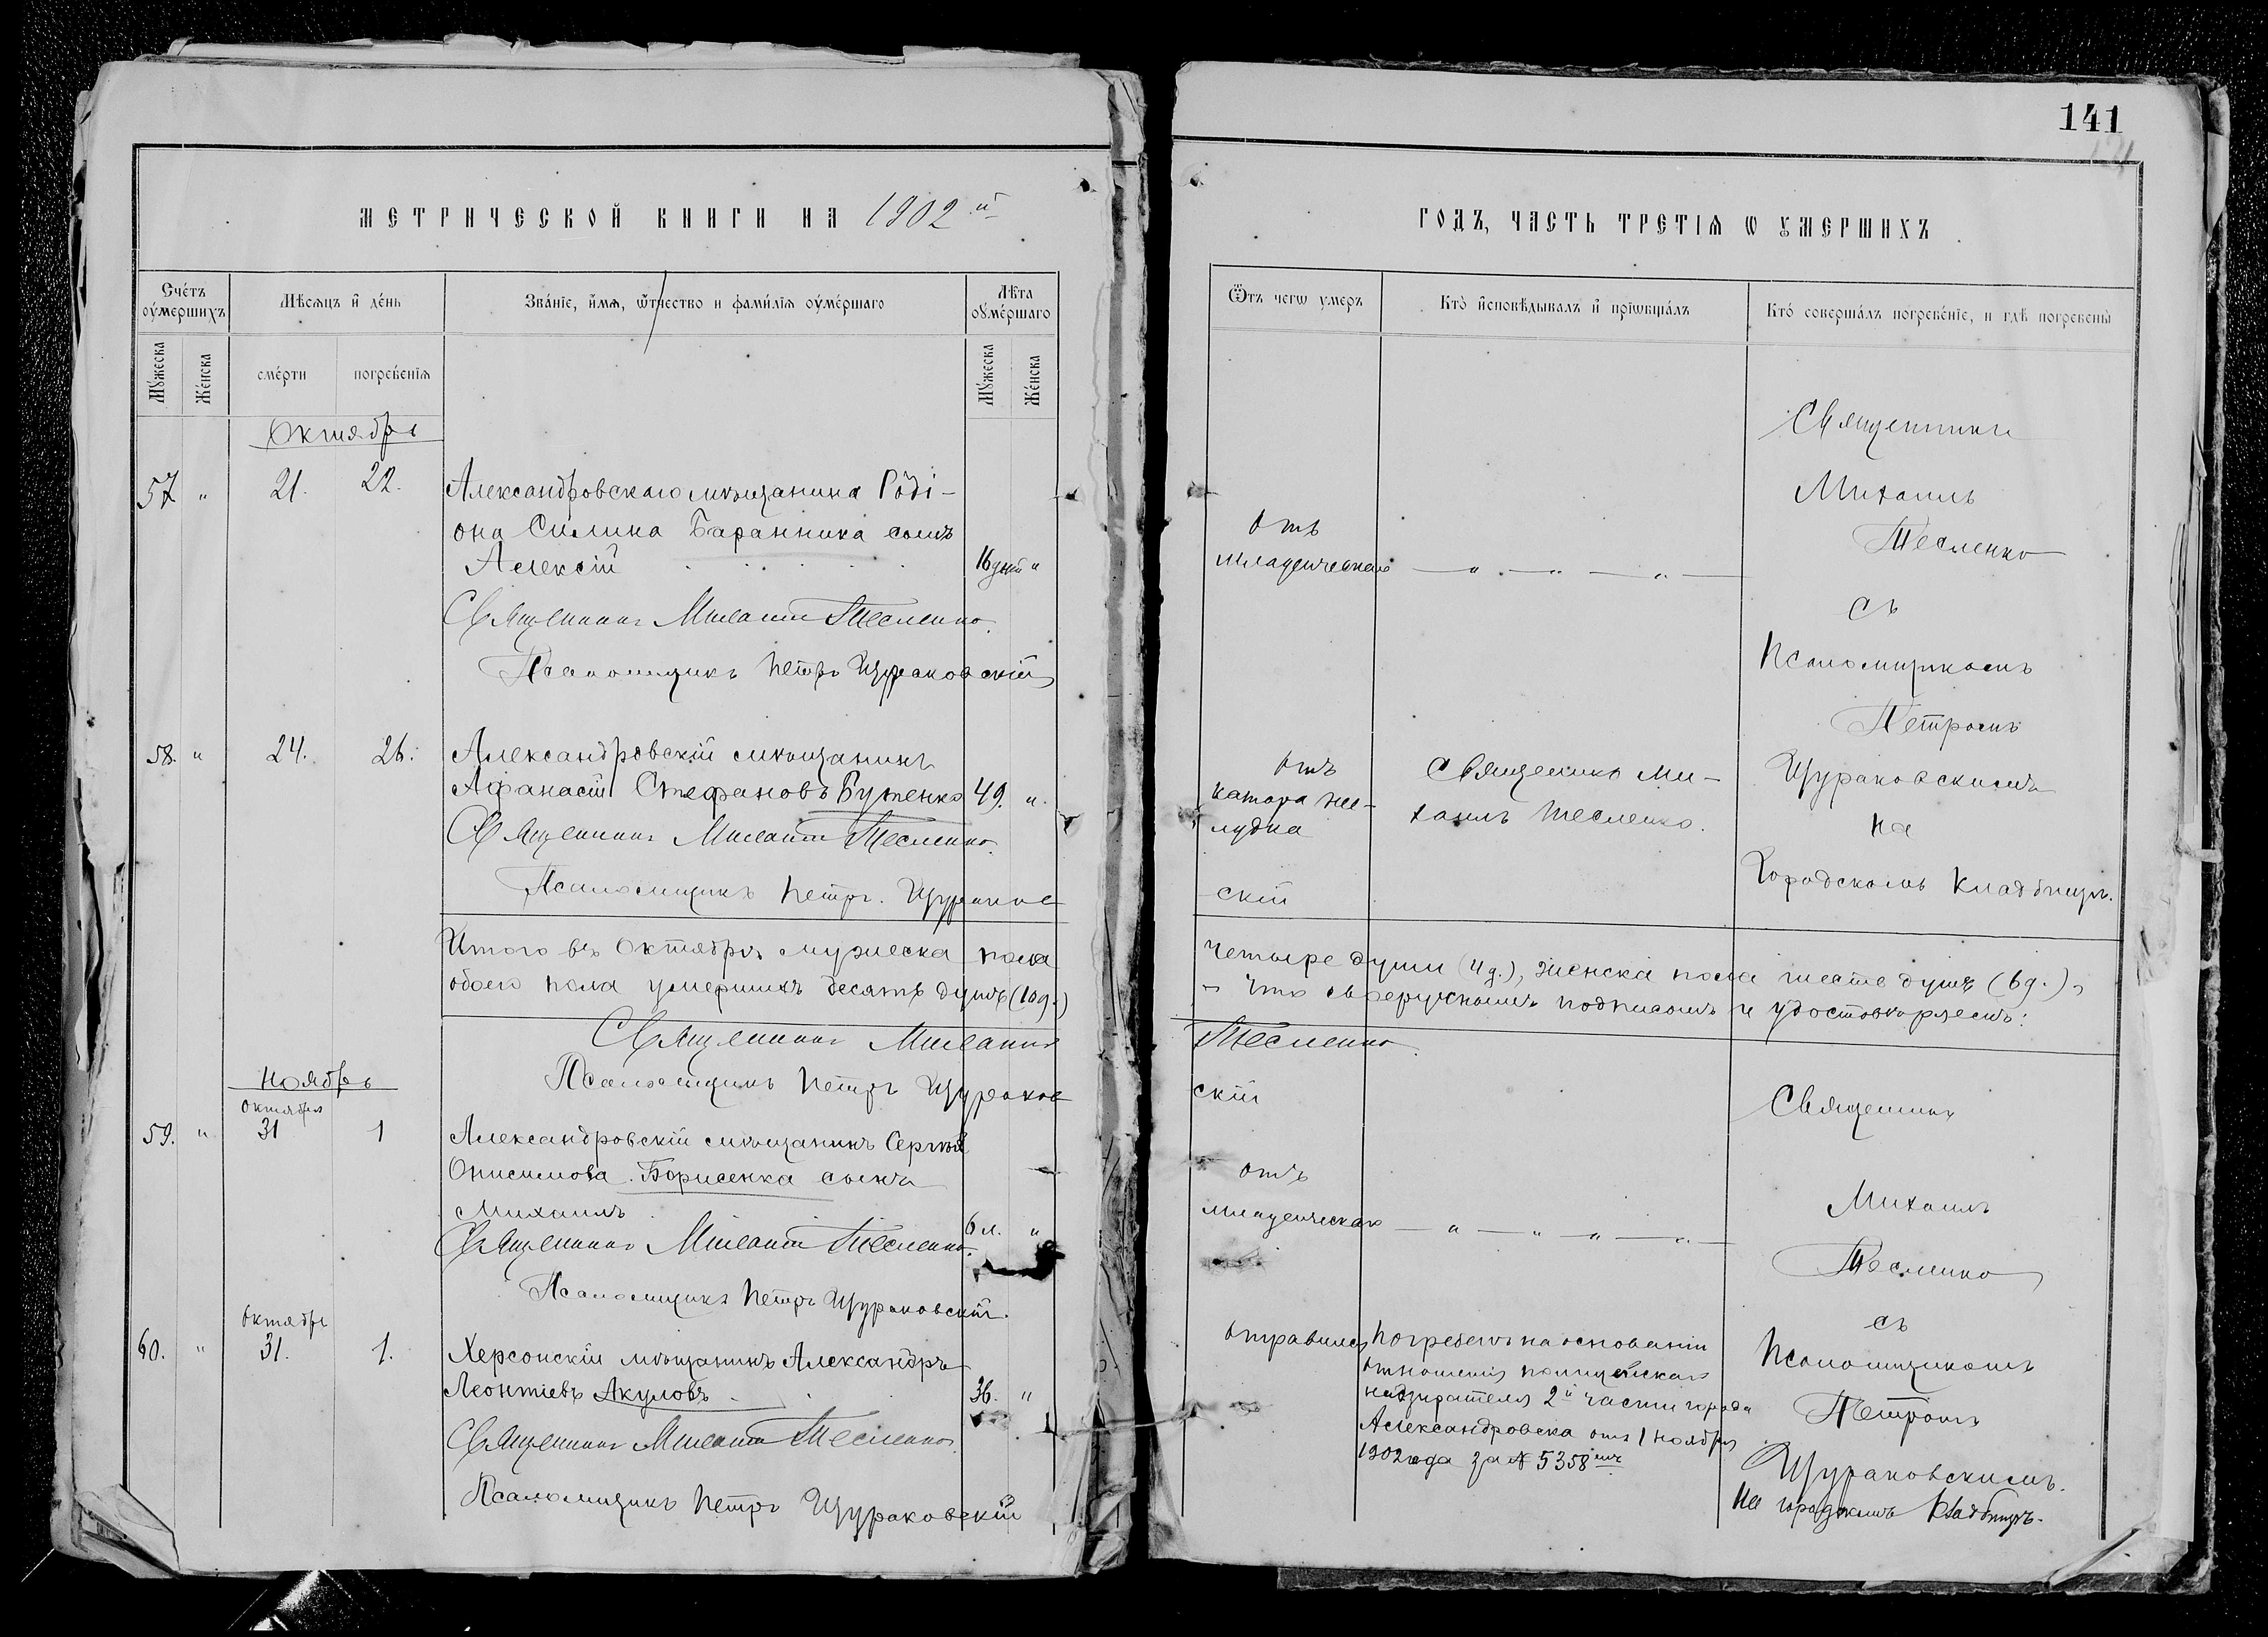 141
МЕТРИЧЕСКОЙ КНИГИ НА 1902 й
ГОДЪ, ЧАСТЬ ТРЕТІѦ Ѡ ОУМЕРШИХЪ
Сче́тъ оу́мершихъ
Мѣсѧцъ и҆ де́нь
Зва́нїе, и҆́мѧ, ѻ҆́тчество и фами́лїѧ оу҆ме́ршаго
Лѣ́та оу҆ме́ршаго
Мꙋ́жеска
Же́нска
сме́рти
погребе́нїѧ
Мꙋ́жеска
Же́нска
Ѿтъ чегѡ умеръ
Кто̀ и҆сповѣ́дывалъ и҆ прїѡбща́лъ
Кто́ соверша́лъ погребе́нїе, и гдѣ̀ погребены̀
Октябрь
57 " 21. 22. Александровскаго мѣщанина Роді-
она Силина Баранника сынъ
Алексій 16 дней "
Священникъ Михаилъ Тесленко.
Псаломщикъ Петръ Щураковскій
отъ
младенческаго — " — " — " —
Священникъ
Михаилъ
Тесленко
съ
Псаломщикомъ
Петромъ
Щураковскимъ
на
Городскомъ Кладбищѣ.
58. " 24. 26. Александровскій мѣщанинъ
Афанасій Стефановъ Бутенко 49. "
Священникъ Михаилъ Тесленко.
Псаломщикъ Петръ Щураков
скій
отъ
катара же-
лудка
Священникъ Ми-
хаилъ Тесленко.
Итого въ Октябрѣ мужеска пола четыре души (4 д.), женска пола шесть душъ (6 д.),
обоего пола умершихъ десять душъ (10 д.) что своеручнымъ подписомъ и удостовѣряемъ:
Священникъ Михаилъ Тесленко.
Псаломщикъ Петръ Щураков скій
Ноябрь
Октября
59. " 31 1 Александровскій мѣщанинъ Сергѣй
Онисимова Борисенка сынъ
Михаилъ 6 л. "
Священникъ Михаилъ Тесленко.
Псаломщикъ Петръ Щураковскій.
отъ
младенческаго — " — " — " — " —
Священникъ
Михаилъ
Тесленко
съ
Псаломщикомъ
Петромъ
Щураковскимъ.
На городскомъ Кладбищѣ.
октября
60. " 31. 1. Херсонскій мѣщанинъ Александръ
Леонтіевъ Акуловъ 36. "
Священникъ Михаилъ Тесленко.
Псаломщикъ Петръ Щураковскій
отравился
Погребенъ на основаніи
отношенія полицейскаго
надзирателя 2й части города
Александровска отъ 1 ноября
1902 года за № 5358